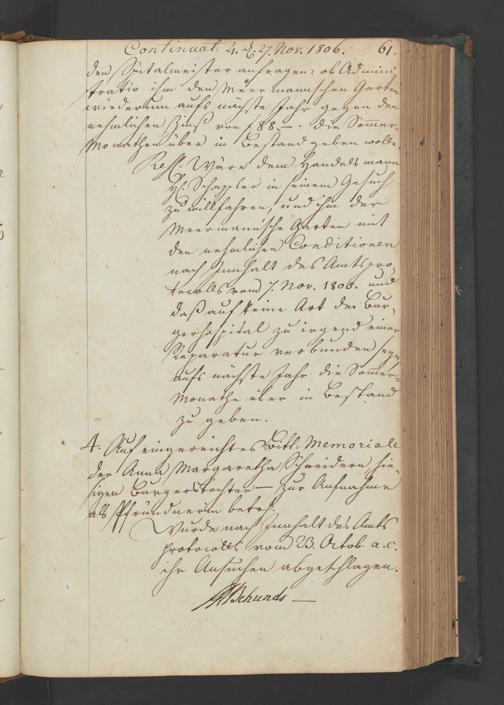 Continuat: 4. d. 27. Nov. 1806. 61.
den Spitalmeister anfragen: ob Admini
tratio ihm den Meermannschen Garten
wiederum aufs nächste Jahr gegen den
nehmlichen Zinß von f 88.— die Sommer-
Monathe über in Bestand geben wolle.
Res: Wäre dem Handelsmann
H: Scheppler in seinem Gesuch
zu willfahren, und ihm der
Meermannsche Garten mit
den nehmlichen Conditionen
nach Innhalt des Amtspro-
tocolls vom 7. Nov. 1806. und
daß auf keine Art das Bur-
gerhospital zu irgend einer
Reparatur verbunden seyn
aufs nächste Jahr die Sommer-
Monathe über in Bestand
zu geben.
4. Auf eingereichtes Bitt-Memoriale
der Anna Margaretha Schneidern hie-
sigen Burgerstochter — zur Aufnahme
als Pfründnerin betr:
Wurde nach Innhalt des Amts
protocolls vom 23. Octob. a.c.
ihr Ansuchen abgeschlagen.